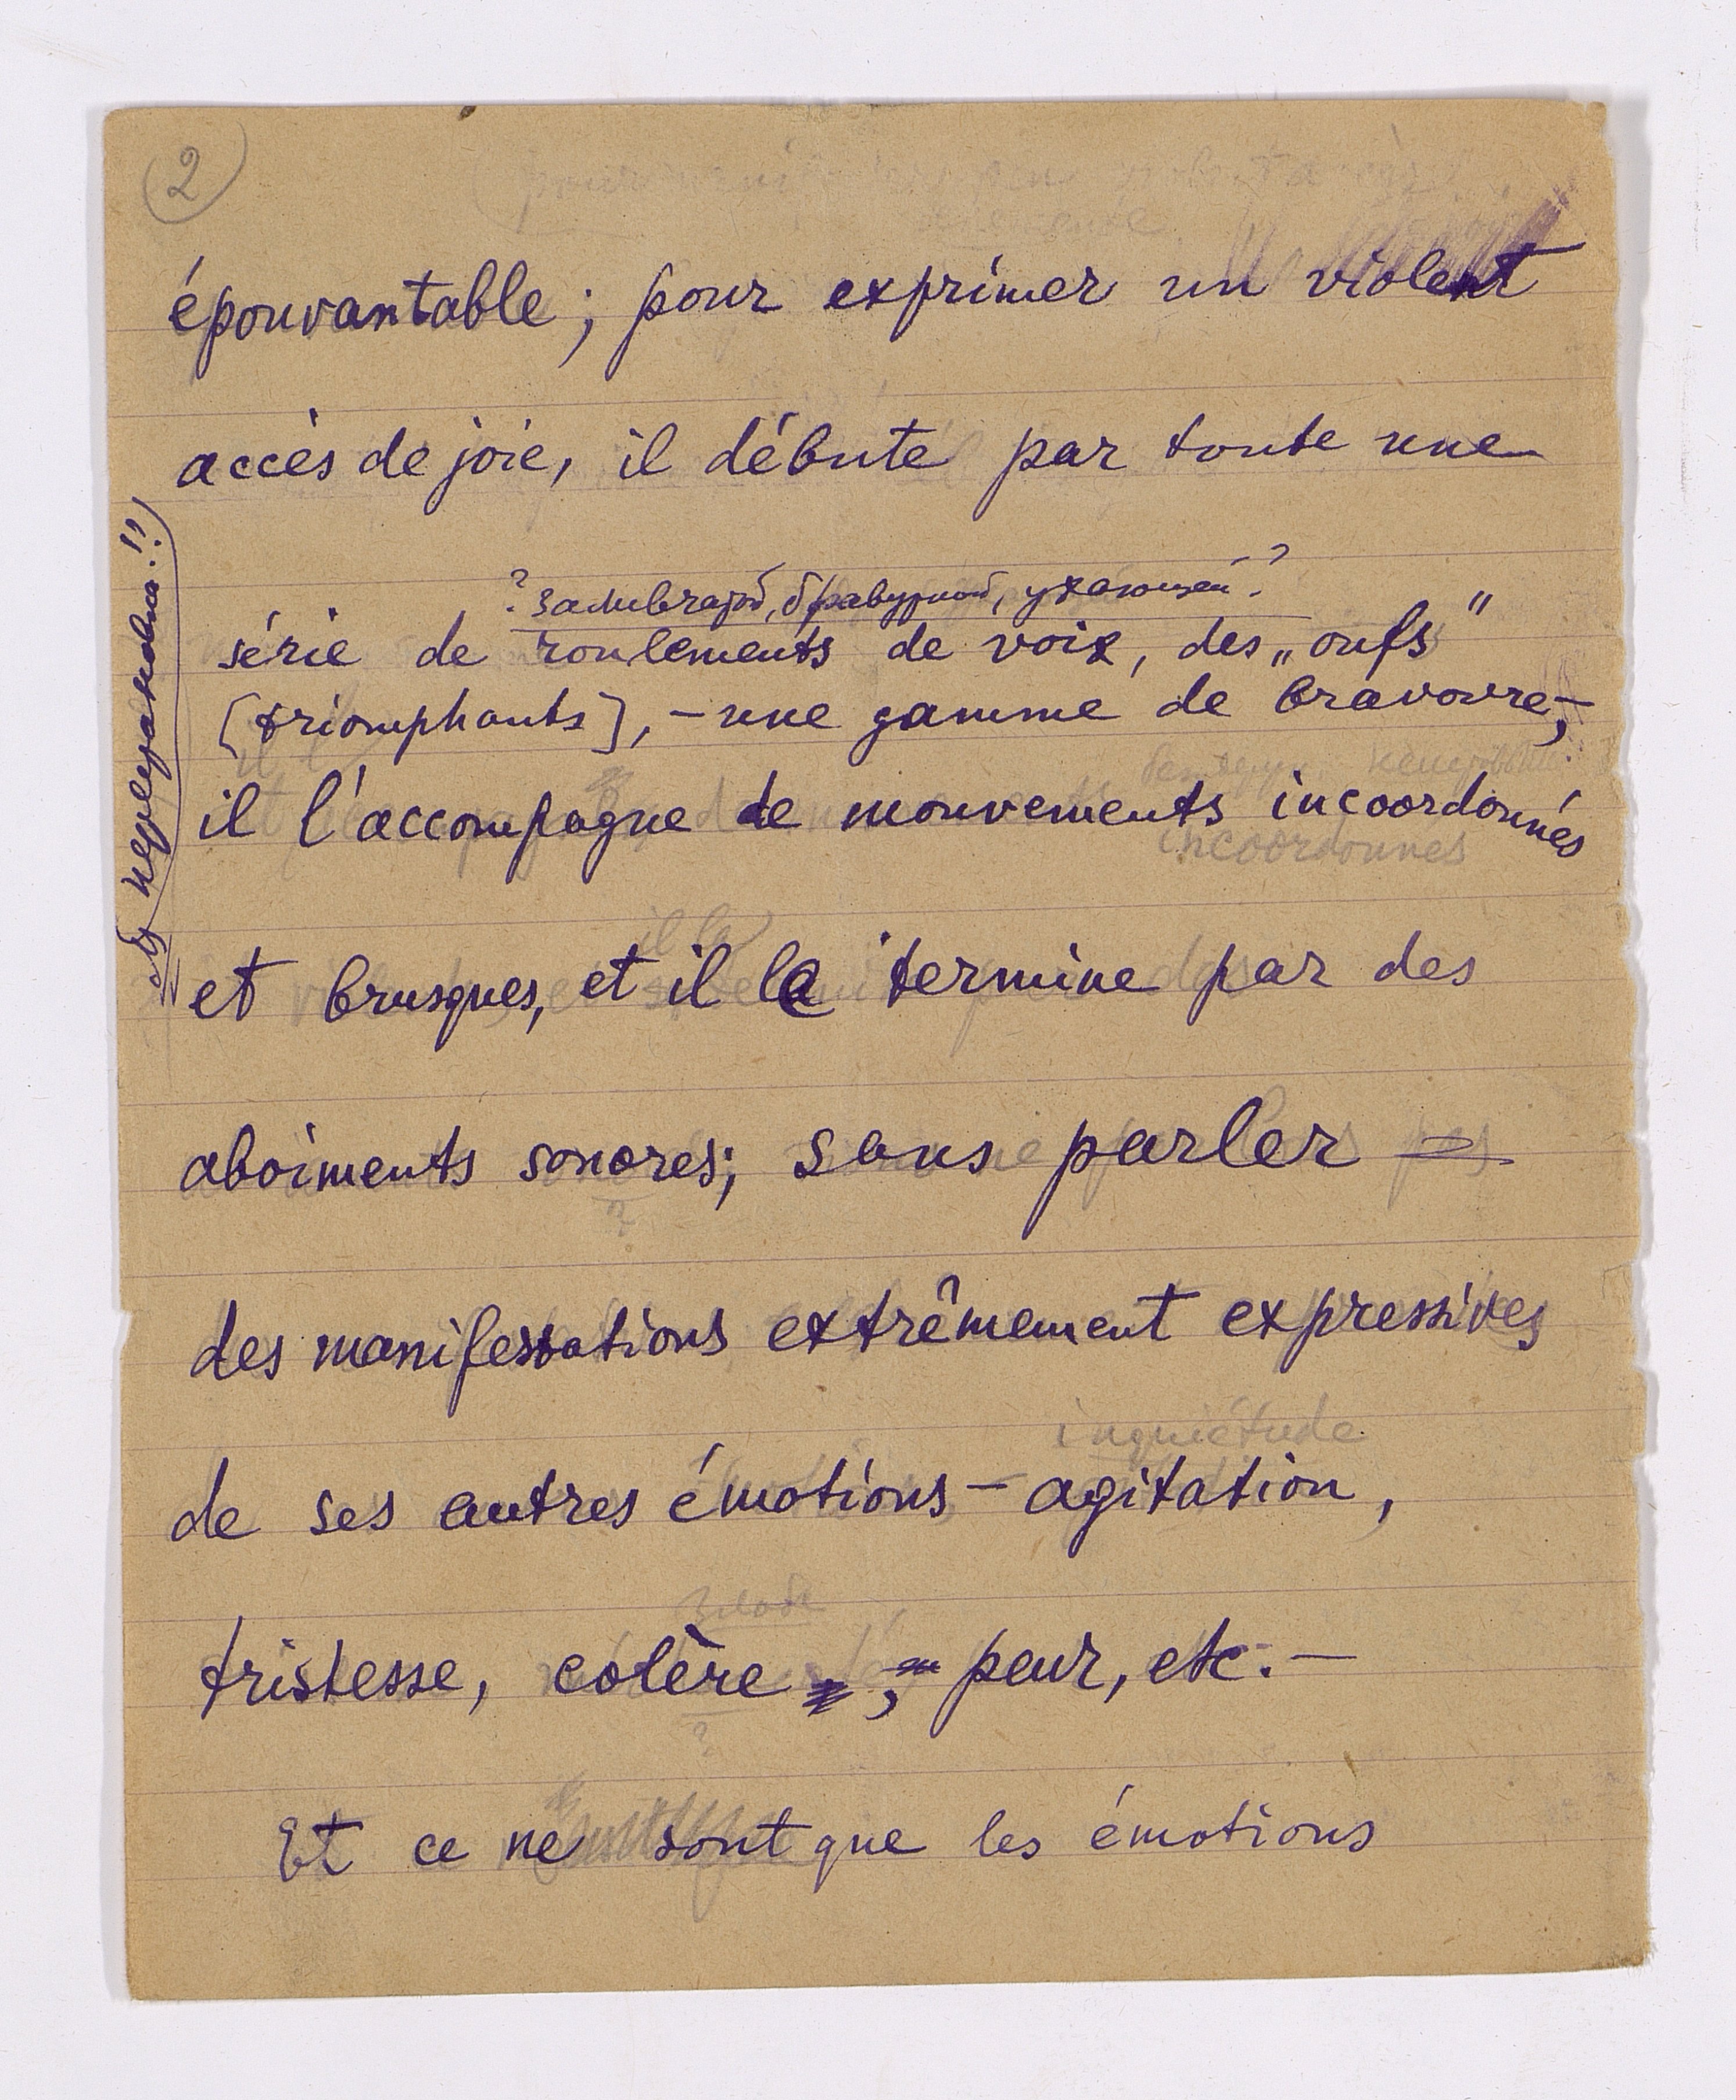 2
épouvantable; pour exprimer un violent
accès de joie, il débute par toute une
? заливчатой, бравурной, ухающей?
série de roulements de voix, des „oufs”
[triomphants], – une gamme de bravoure, –
il l'accompagne de mouvements incoordonnés
incoordonnés
il la
et brusques, et il la termine par des
aboiments sonores; sans parler
?
des manifestations extrêmement expressives
inquiétude
de ses autres émotions – agitation,
tristesse, colère, peur, etc. –
?
Et ce ne sont que les émotions